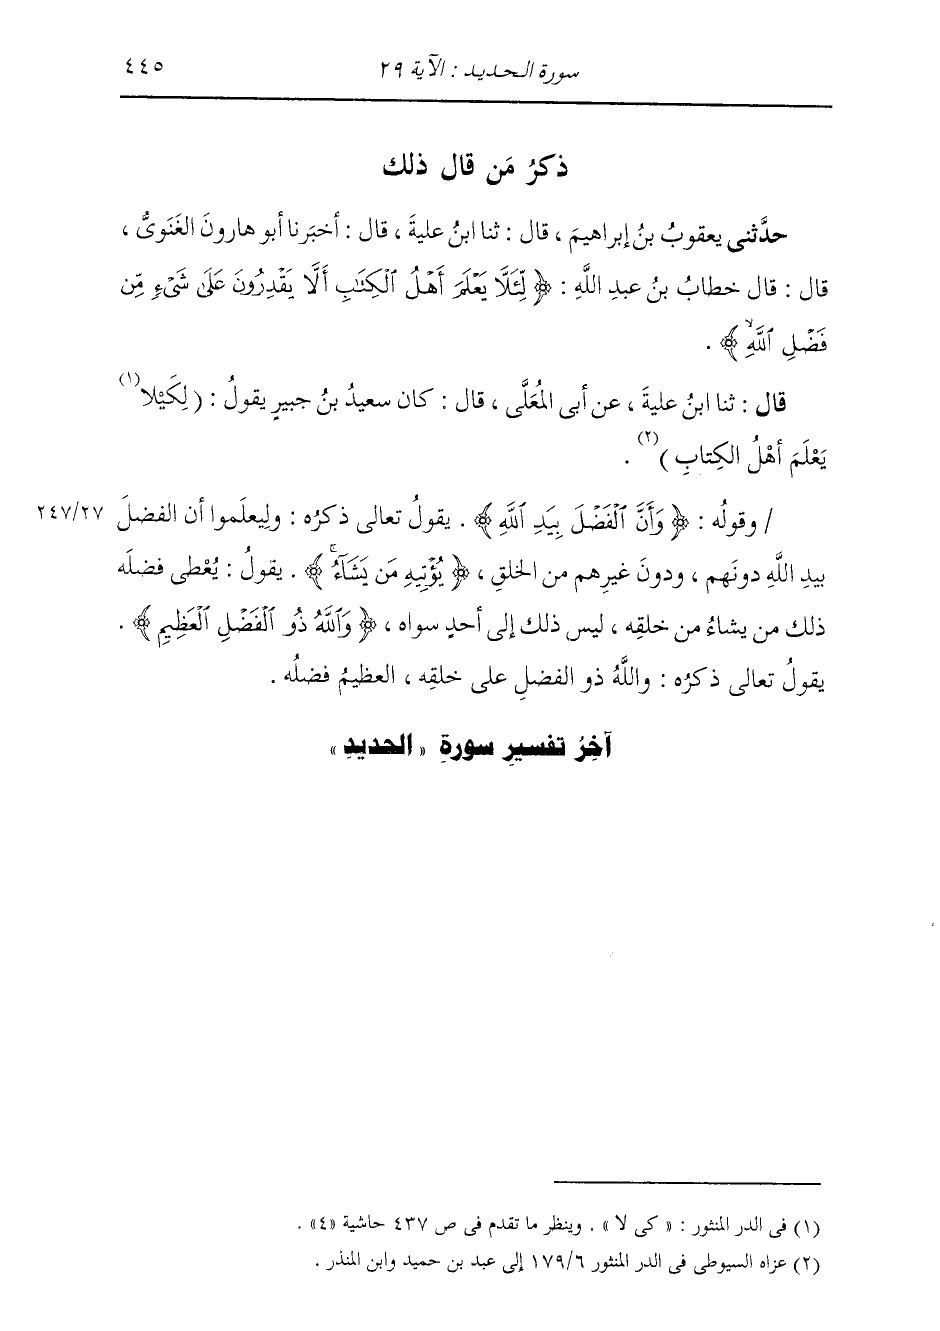 سورة الحديد : الآية ٢٩ ٤٤٥
ذكرُ مَن قال ذلك
حدَّثنى يعقوبُ بنُ إبراهيمَ ، قال : ثنا ابنُ عليةَ ، قال : أخبَرنا أبو هارونَ الغَنَوىُّ ،
قال : قال خطابُ بنُ عبدِ اللَّهِ : ﴿ لِّئَلَّا يَعْلَمَ أَهْلُ ٱلْكِتَٰبِ أَلَّا يَقْدِرُونَ عَلَىٰ شَىْءٍ مِّن
فَضْلِ ٱللَّهِۙ ﴾ .
قال : ثنا ابنُ عليةَ ، عن أبى المُعَلَّى ، قال : كان سعيدُ بنُ جبيرٍ يقولُ : ( لِكَيْلا(١)
يَعْلَمَ أهْلُ الكِتابِ )(٢) .
/ وقولُه : ﴿ وَأَنَّ ٱلْفَضْلَ بِيَدِ ٱللَّهِ ﴾ . يقولُ تعالى ذكرُه : ولِيعلَموا أن الفضلَ ٢٤٧/٢٧
بيدِ اللَّهِ دونَهم ، ودونَ غيرِهم من الخلقِ ، ﴿ يُؤْتِيهِ مَن يَشَآءُۚ ﴾ . يقولُ : يُعْطى فضلَه
ذلك من يشاءُ من خلقِه ، ليس ذلك إلى أحدٍ سواه ، ﴿ وَٱللَّهُ ذُو ٱلْفَضْلِ ٱلْعَظِيمِ ﴾ .
يقولُ تعالى ذكرُه : واللَّهُ ذو الفضلِ على خلقِه ، العظيمُ فضلُه .
آخِرُ تفسيرِ سورةِ « الحديدِ »
(١) فى الدر المنثور : « كى لا » . وينظر ما تقدم فى ص ٤٣٧ حاشية «٤» .
(٢) عزاه السيوطى فى الدر المنثور ١٧٩/٦ إلى عبد بن حميد وابن المنذر .